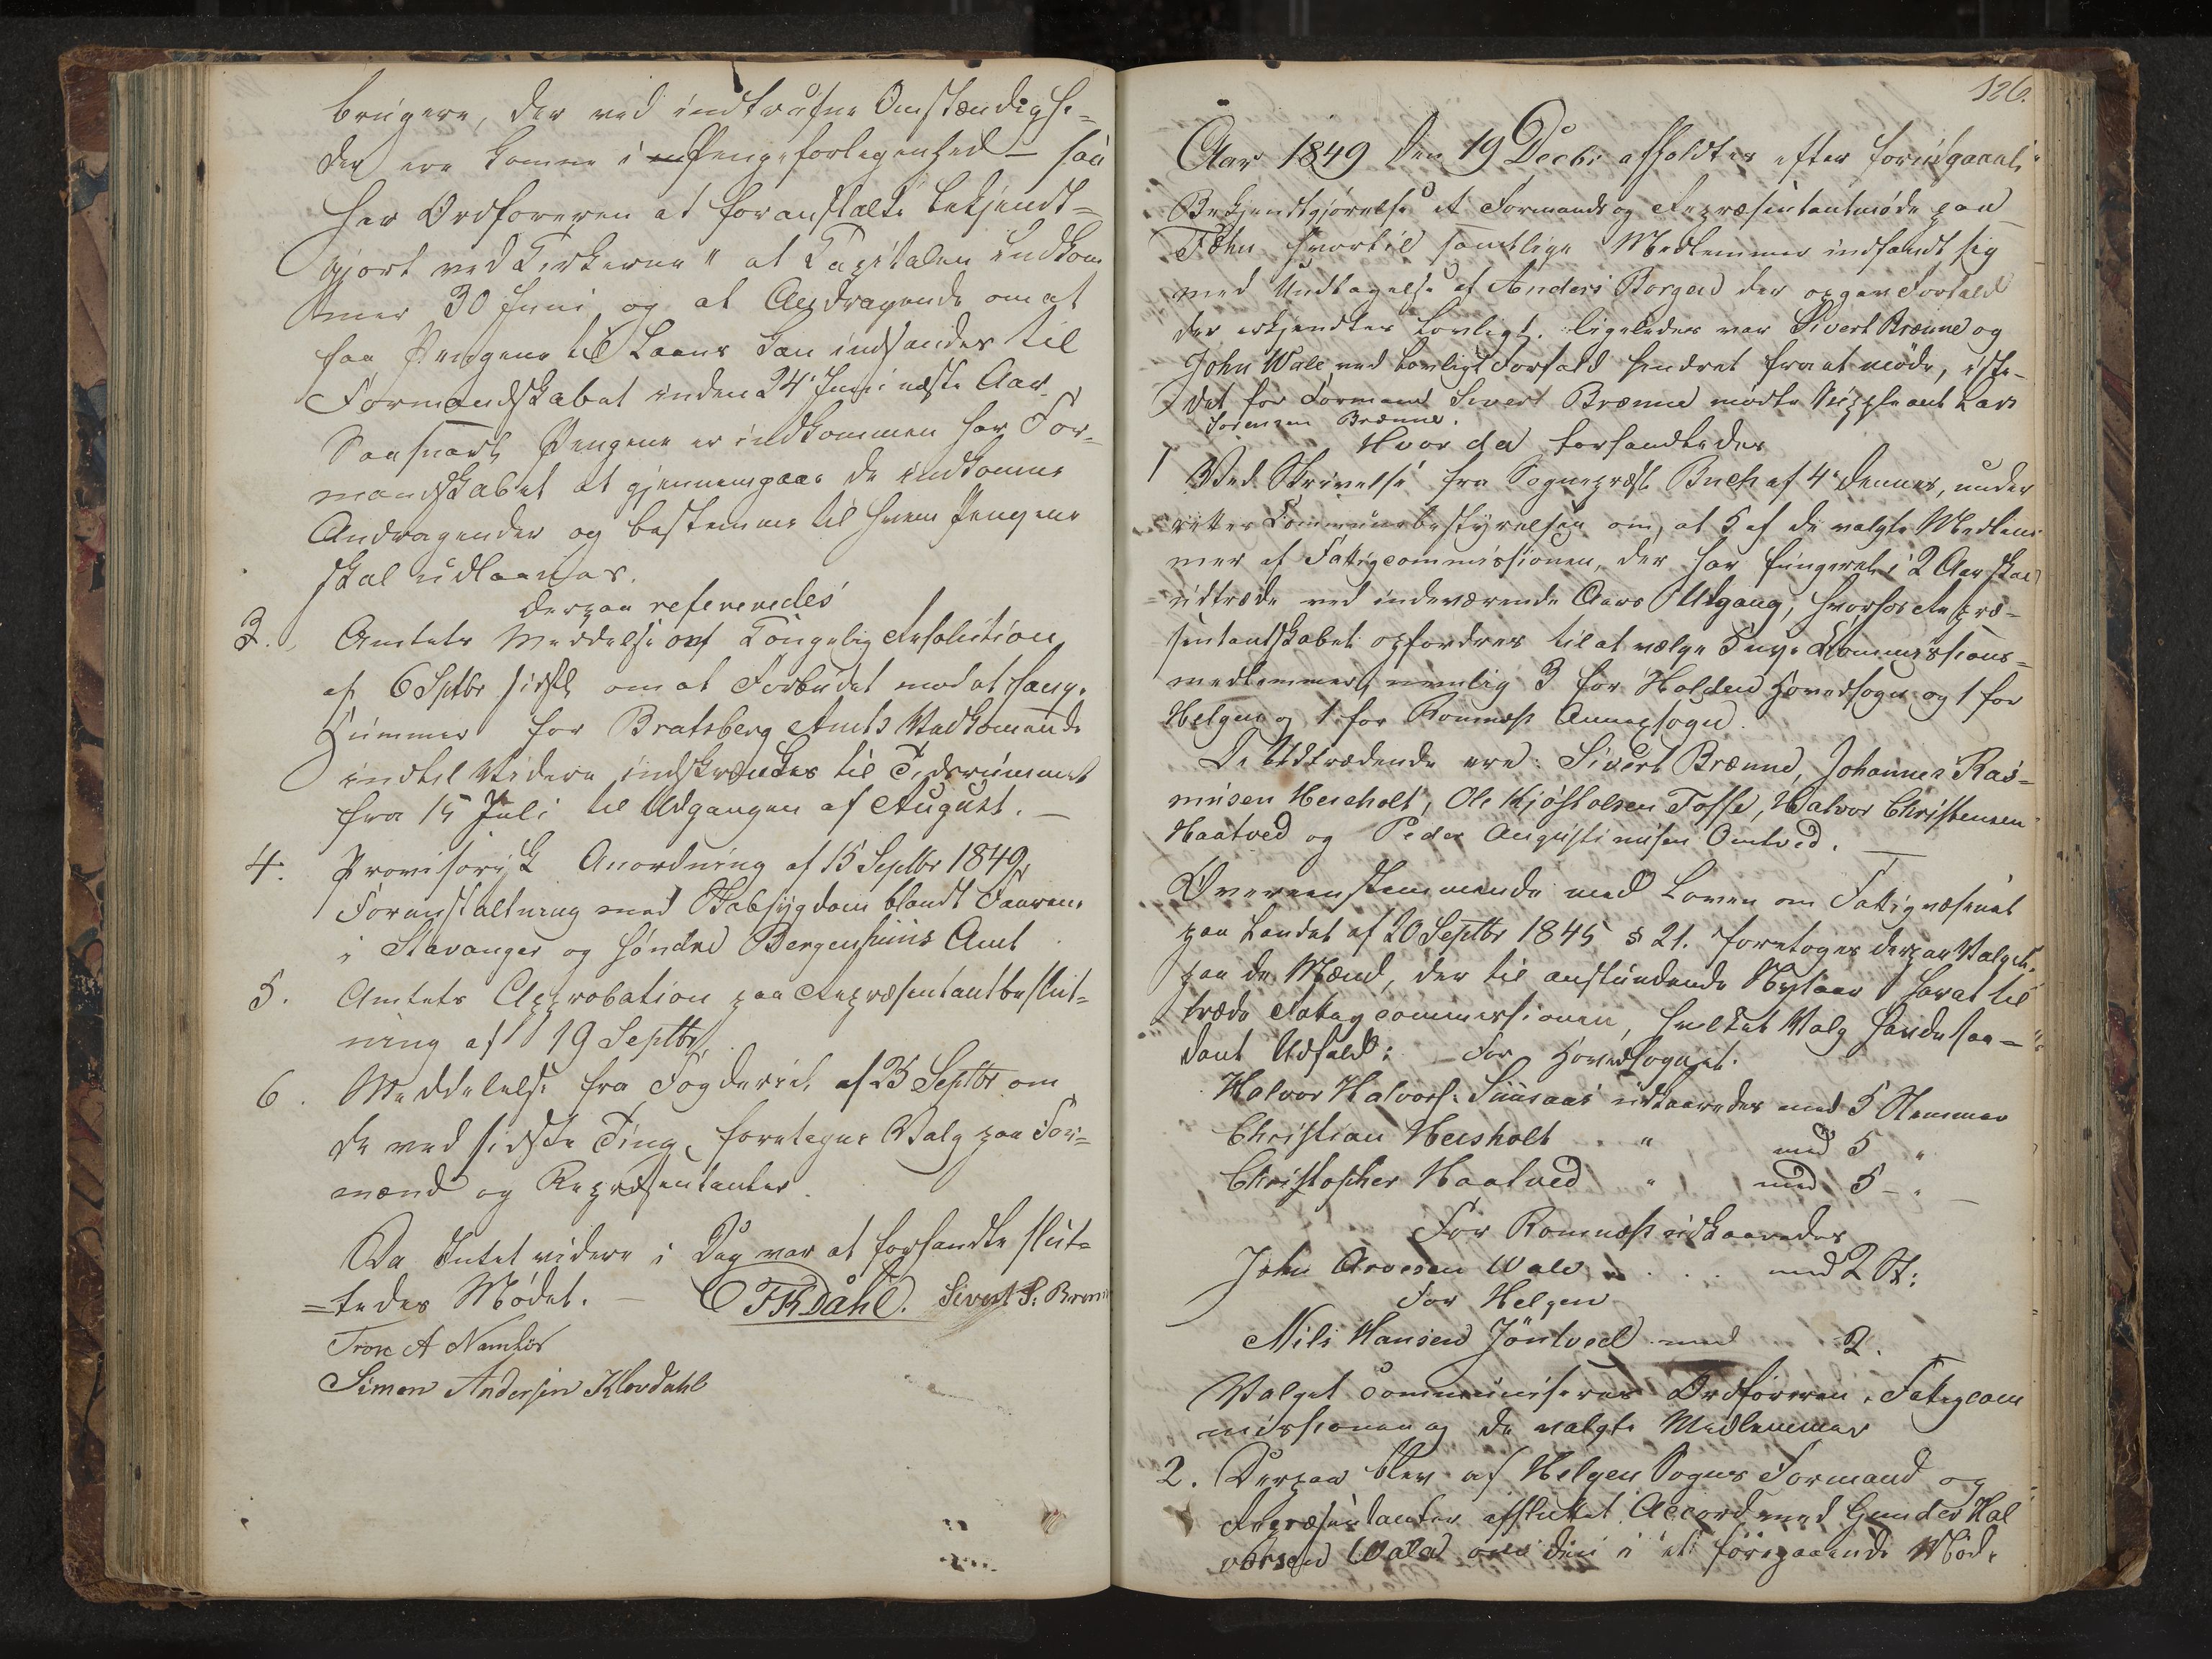 brugere, der ved indtrufne Omstændighe-
der ere komne i Pengeforlegenhed – saa
har Ordføreren at foranstalte bekjendt-
gjort ved Kirkerne "at Kapitalen indkom
mer 30 Juni og at Andragende om at
faa Pengene til Laans kan indsendes til
Formandskabet inden 24 Juni næste Aar.
Saasnart Pengene er indkommen har For-
mandskabet at gjennemgaae de indkomne
Andragender og bestemme til hvem Pengene
skal udlaanes.
Derpaa refereredes
3. Amtets Meddelse om Kongelig Resolution
af 6 Septbr sidstl om at Forbudet mod at fange
Hummer for Bratsberg Amts Vedkommende
indtil Videre indskrænkes til Tidsrummet
fra 15 Juli til Udgangen af August. –
4. Provisorisk Anordning af 15 Septbr 1849,
Foranstaltning mod Skabsygdom blandt Faarene
i Stavanger og søndre Bergenhuus Amt
5. Amtets Approbation paa Repræsentantbeslut-
ning af 19 Septbr.
6. Meddelelse fra Fogderiet af 25 Septbr om
de ved sidste Ting foretagne Valg paa For-
mænd og Repræsentanter.
Da Intet videre i Dag var at forhandle slut-
=tedes Mødet. – Dahl. Sivert S. Brenne
A Namløs
Simon Andersen Klovdahl
126.
Aar 1849 den 19 Decbr afholdtes efter foregaaende
Bekjendtgjørelse et Formands og Repræsentantmøde paa
Fæhn hvortil samtlige Medlemmer indfandt sig
med Undtagelse af Anders Borgen der opgav Forfald
der erkjendtes lovligt. ligeledes var Sivert Brenne og
John Wale ved lovligt Forfald hindret fra at møde, iste-
det for Formand Sivert Brenne mødte Suppleant Lars
Sørensen Brenne.
Hvorda forhandledes
1 Ved Skrivelse fra Sognepræst Buch af 4 dennes, under
retter Communebestyrelsen om, at 5 af de valgte Medlem
mer af Fattigcommissionen, der har fungeret i 2 Aar skal
udtræde ved indeværende Aars Udgang, hvorfor Repræ-
sentandskabet opfordres til at vælge 5 nye Commissions-
medlemmer, nemlig 3 for Holden Hovedsogn og 1 for
Helgen og 1 for Romnæs Annexsogn.
De Udtrædende ere: Sivert Brenne, Johannes Ras-
musen Heisholt, Ole Kjøstolsen Tosse, Halvor Christensen
Haatved og Peder Augustinusen Omtved.
Overeenstemmende med Loven om Fattigvæsenet
paa Landet af 20 Septbr 1845 § 21. foretoges derpaa Valget
paa de Mænd, der til anstundende Nytaar har at til
træde Fattigcommissionen, hvilket Valg havde saa-
dant Udfald: For Hovedsognet.
Halvor Halvors. Suusaas udkaaredes med 5 Stemmer
Christian Heisholt " med 5 "
Christopher Haatved " med 5 – "
For Romnæs udkaaredes
John Arvesen Wale . . . med 2 St:
For Helgen
Nils Hansen Jøntved med 2.
Valget communiseres Ordføreren i Fatigcom
missionen og de valgte Medlemmer
2. Derpaa blev af Helgen Sogns Formand og
Repræsentanter afsluttet Accord med Gunder Hal
vorsen Wala om den i et foregaaende Møde